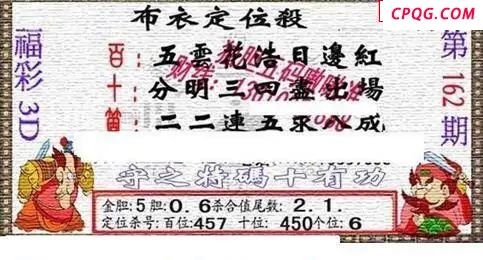 CPQG.COM
布衣定位殺
福彩3D
第162期
百:五雲花浩日邊紅
十:分明三四盡出場
二二連五來八成
守之將碼十有功
金胆:5胆:0.6杀合值尾数:2.1.
定位杀号:百位:457 十位:450个位:6